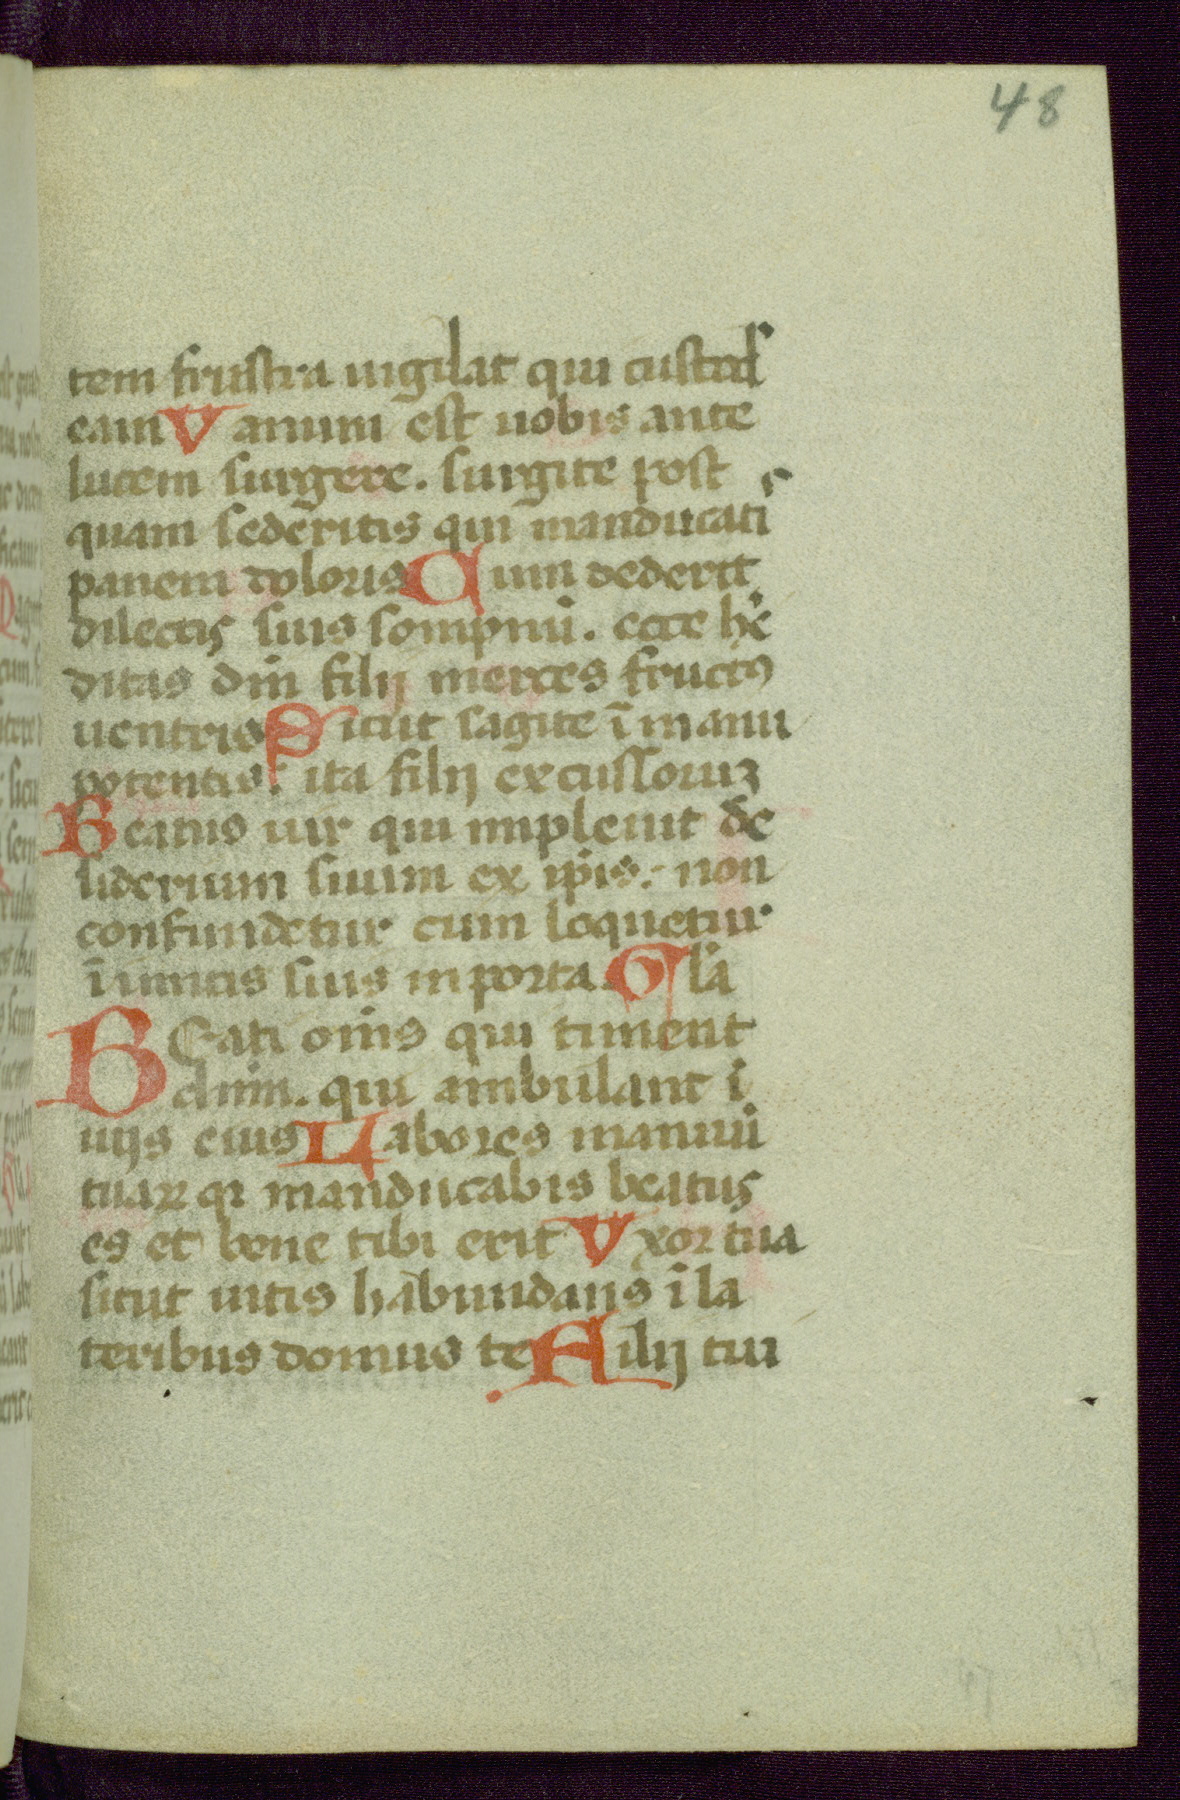 48
tem frustra uigilat qui custod
eam Vanum est uobis ante
lucem surgere. surgite post
quam sederitis qui manducatis
panem doloris Cum dederit
dilectis suis sompnū. ecce h'e
ditas dnī filij merces fructꝰ
uentris Sicut sagitte ī manu
potentis. ita filij excussoruꝫ
Beatus uir qui impleuit de
siderium suum ex ipīs. non
confundetur cum loquetur
īimicis suis in porta. Glā
Beati omīs qui timent
dnm. qui ambulant ī
uijs eius Labores manuū
tuaꝝ qī manducabis beatus
es et bene tibi erit Vxor tua
sicut uitis habundans ī la
teribus domus te Filij tui